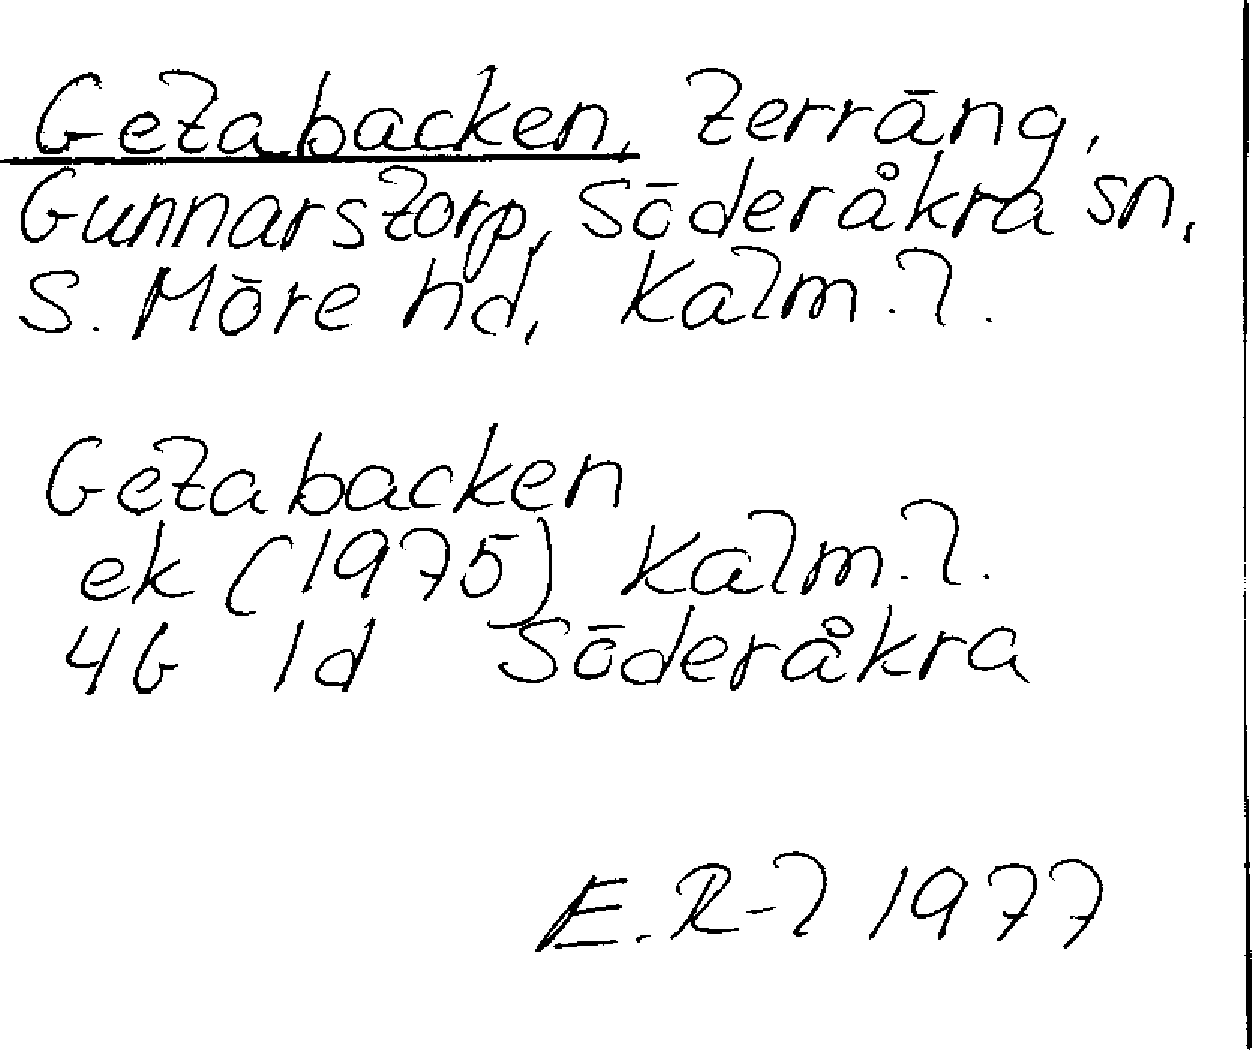 Getabacken, terräng,
Gunnarstorp, Söderåkra sn,
S. Möre hd, Kalm. l.
Getabacken
ek (1975) Kalm. l.
4G 1d Söderåkra
E. R-l 1977